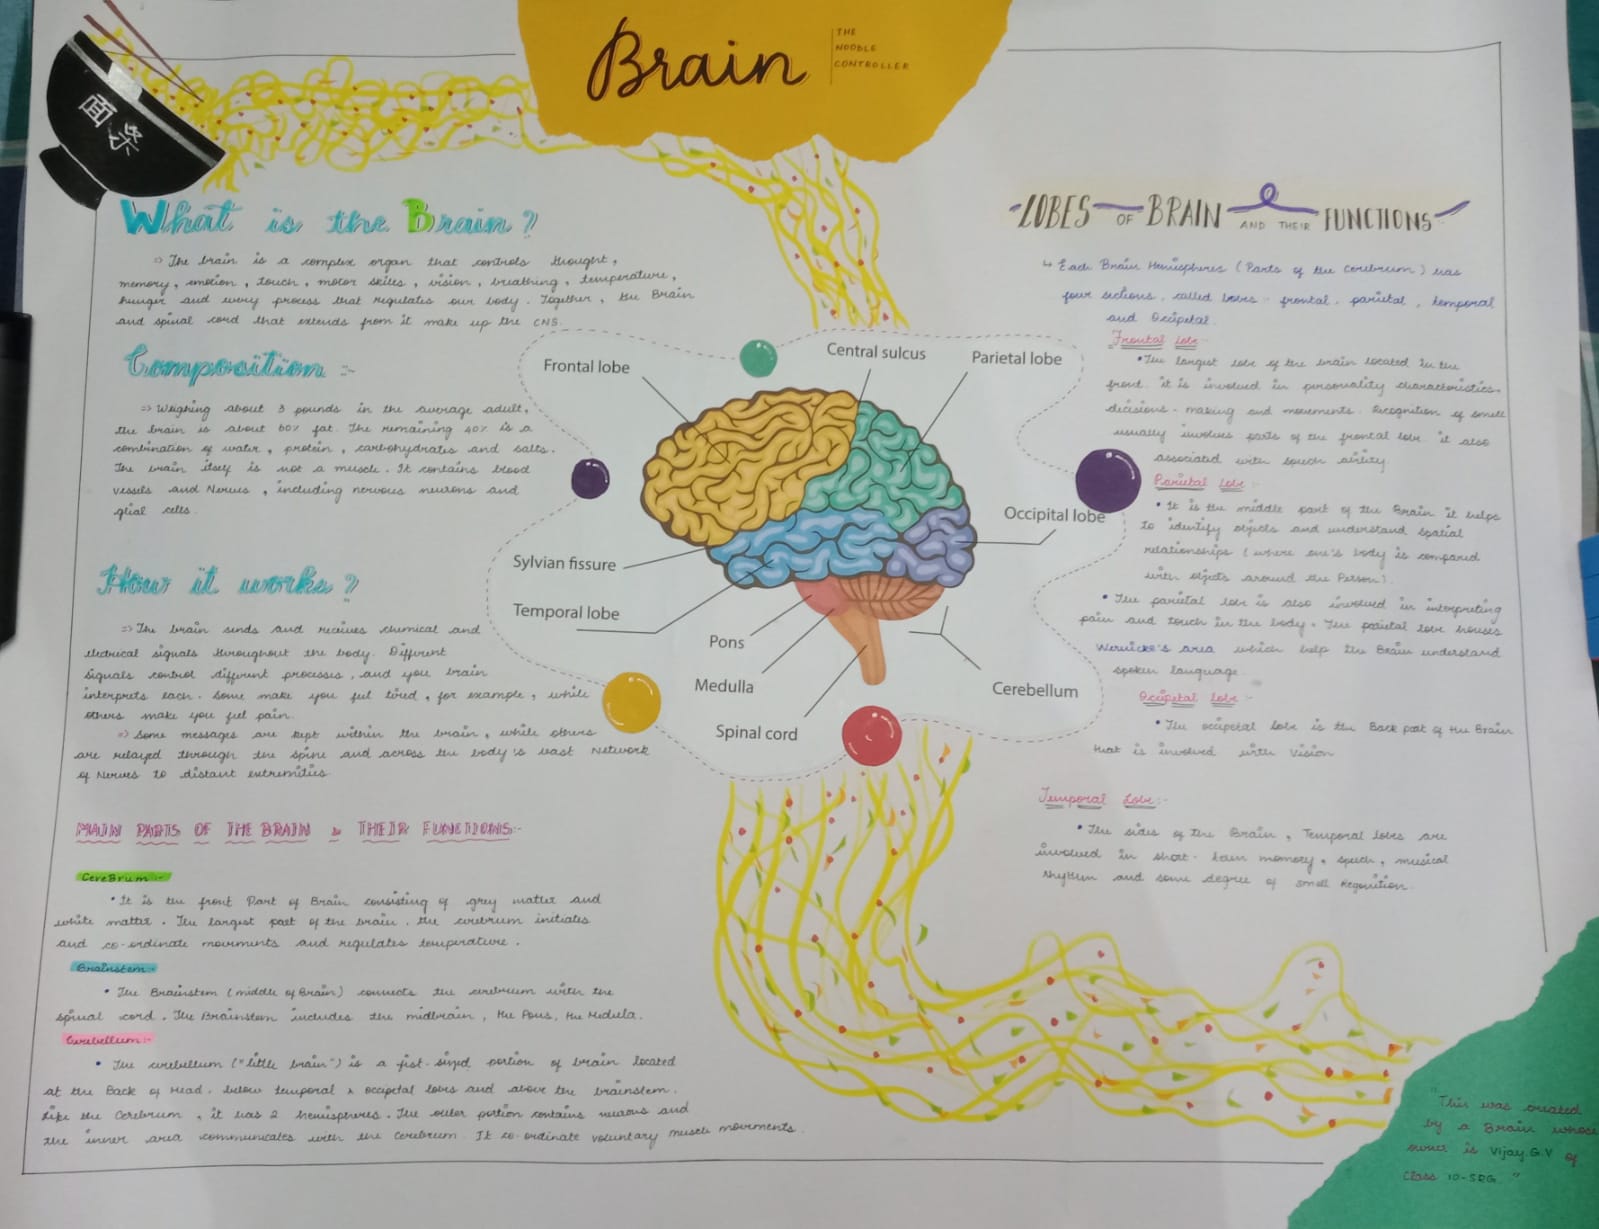 Brain
THE
NOODLE
CONTROLLER
面条
What is the Brain?
⇒ The brain is a complex organ that controls thought,
memory, emotion, touch, motor skills, vision, breathing, temperature,
hunger and every process that regulates our body. Together, the Brain
and spinal cord that extends from it make up the CNS.
Composition :-
⇒ Weighing about 3 pounds in the average adult,
the brain is about 60% fat. The remaining 40% is a
combination of water, protein, carbohydrates and salts.
The brain itself is not a muscle. It contains blood
vessels and Nerves, including nervous neurons and
glial cells.
How it works?
⇒ The brain sends and receives chemical and
electrical signals throughout the body. Different
signals control different processes, and you brain
interprets each. Some make you feel tired, for example, while
others make you feel pain.
⇒ Some messages are kept within the brain, while others
are relayed through the spine and across the body's vast Network
of Nerves to distant extremities.
MAIN PARTS OF THE BRAIN & THEIR FUNCTIONS:-
CereBrum:-
• It is the front Part of Brain consisting of grey matter and
white matter. The largest part of the brain, the cerebrum initiates
and co-ordinate movements and regulates temperature.
Brainstem:-
• The Brainstem (middle of Brain) connects the cerebrum with the
spinal cord. The Brainstem includes the midbrain, the Pons, the Medula.
Cerebellum:-
• The cerebellum ("little brain") is a fist-sized portion of brain located
at the Back of Head, below temporal & occipetal lobes and above the brainstem.
Like the Cerebrum, it has 2 hemispheres. The outer portion contains neurons and
the inner area communicates with the Cerebrum. It co-ordinate voluntary muscle movements.
Frontal lobe
Central sulcus
Parietal lobe
Occipital lobe
Sylvian fissure
Temporal lobe
Pons
Medulla
Cerebellum
Spinal cord
LOBES OF BRAIN AND THEIR FUNCTIONS:-
↳ Each Brain Hemispheres (Parts of the Cerebrum) has
four sections, called lobes:- frontal, parietal, temporal
and Occipetal.
Frontal lobe:-
• The largest lobe of the brain located in the
front, it is involved in personality characteristics,
decisions-making and movements. Recognition of smell
usually involves parts of the frontal lobe. it also
associated with speech ability.
Parietal lobe:-
• It is the middle part of the Brain it helps
to identify objects and understand spatial
relationships (where one's body is compared
with objects around the Person).
• The parietal lobe is also involved in interpreting
pain and touch in the body. The parietal lobe houses
Wernicke's area which help the Brain understand
spoken language.
Occipetal lobe:-
• The occipetal lobe is the Back part of the Brain
that is involved with vision
Temporal Lobe:-
• The sides of the Brain, Temporal lobes are
involved in short-term memory, speech, musical
rhythm and some degree of smell Regonition.
"This was created
by a Brain whose
owner is Vijay.G.V of
Class 10-SRG."